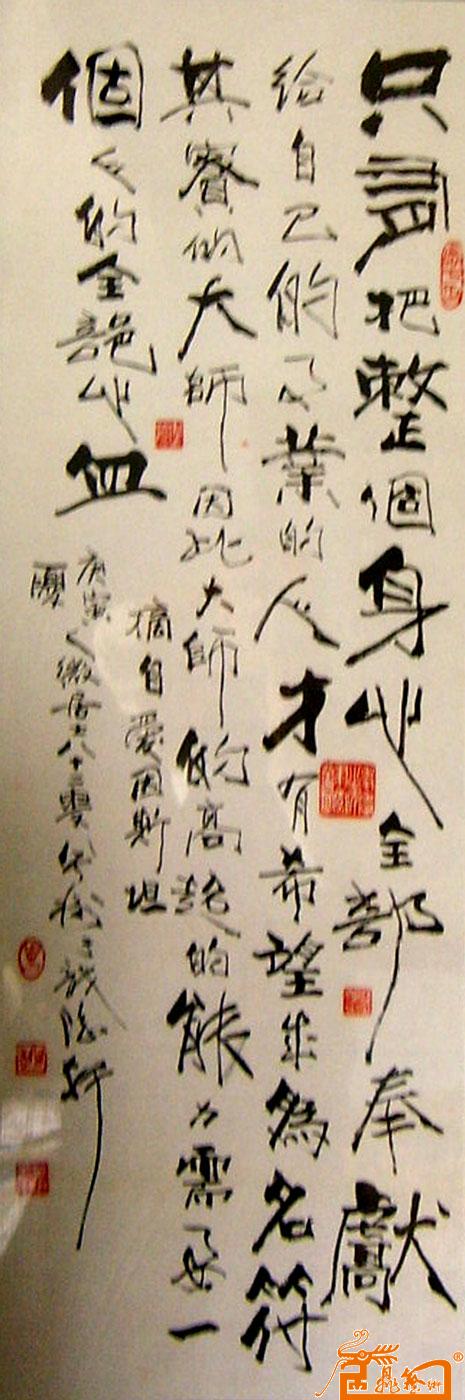 只有把整個身心全部奉獻
給自己的事業的人才有希望成為名符
其實的大師因此大師的高超的能力需要一
個人的全部心血
摘自愛因斯坦
庚寅 居士八十二叟